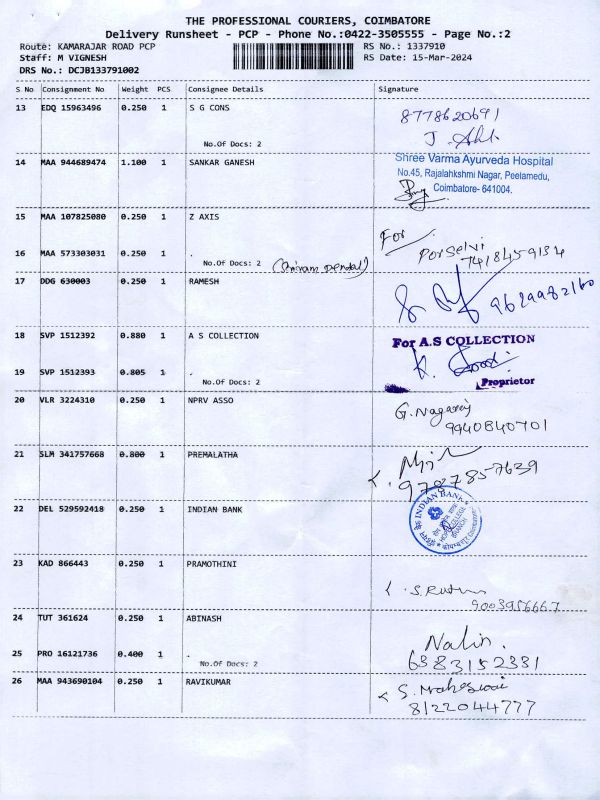 THE PROFESSIONAL COURIERS, COIMBATORE
Delivery Runsheet - PCP - Phone No.:0422-3505555 - Page No.:2
Route: KAMARAJAR ROAD PCP RS No.: 1337910
Staff: M VIGNESH RS Date: 15-Mar-2024
DRS No.: DCJB133791002
S No Consignment No Weight PCS Consignee Details Signature
13 EDQ 15963496 0.250 1 S G CONS 8778620691
No.Of Docs: 2
14 MAA 944689474 1.100 1 SANKAR GANESH Shree Varma Ayurveda Hospital
No.45, Rajalahkshmi Nagar, Peelamedu,
Coimbatore- 641004.
15 MAA 107825080 0.250 1 Z AXIS For
Porselvi
16 MAA 573303031 0.250 1 . 7418459134
No.Of Docs: 2
17 DDG 630003 0.250 1 RAMESH
9629982160
18 SVP 1512392 0.880 1 A S COLLECTION For A.S COLLECTION
19 SVP 1512393 0.805 1 .
No.Of Docs: 2 Proprietor
20 VLR 3224310 0.250 1 NPRV ASSO G. Nagaraj
9940840701
21 SLM 341757668 0.800 1 PREMALATHA
9787857639
22 DEL 529592418 0.250 1 INDIAN BANK INDIAN BANK
23 KAD 866443 0.250 1 PRAMOTHINI
9003956667
24 TUT 361624 0.250 1 ABINASH Nalin
25 PRO 16121736 0.400 1 . 6383152331
No.Of Docs: 2
26 MAA 943690104 0.250 1 RAVIKUMAR S. Maheswari
8122044777